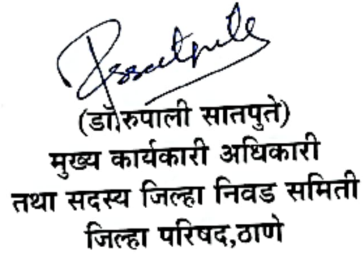 (डॉ.रुपाली सातपुते)
मुख्य कार्यकारी अधिकारी
तथा सदस्य जिल्हा निवड समिती
जिल्हा परिषद,ठाणे